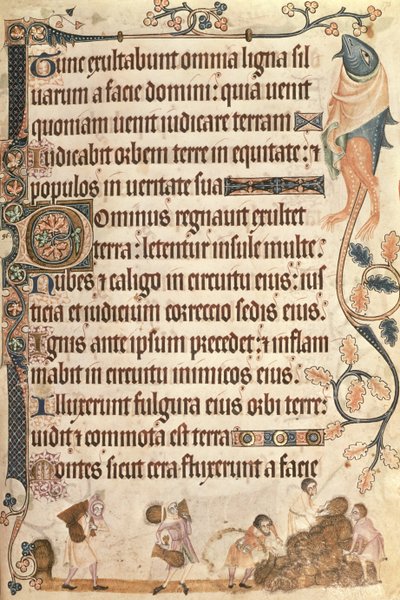 Tunc exultabunt omnia ligna sil
uarum a facie domini: quia uenit
quoniam uenit iudicare terram
Iudicabit orbem terre in equitate: ⁊
populos in ueritate sua
Dominus regnauit exultet
terra: letentur insule multe.
Nubes ⁊ caligo in circuitu eius: ius
ticia et iudicium correccio sedis eius.
Ignis ante ipsum precedet: ⁊ inflam
mabit in circuitu inimicos eius.
Illuxerunt fulgura eius orbi terre:
uidit ⁊ commota est terra
Montes sicut cera fluxerunt a facie